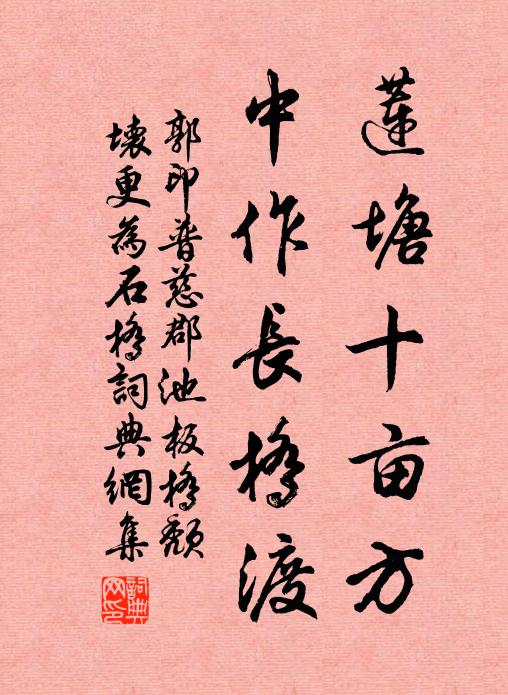 蓮塘十亩方
中作長橋渡
郭印普慈郡池板橋頹
壊更為石橋詞典網集
詞典网印